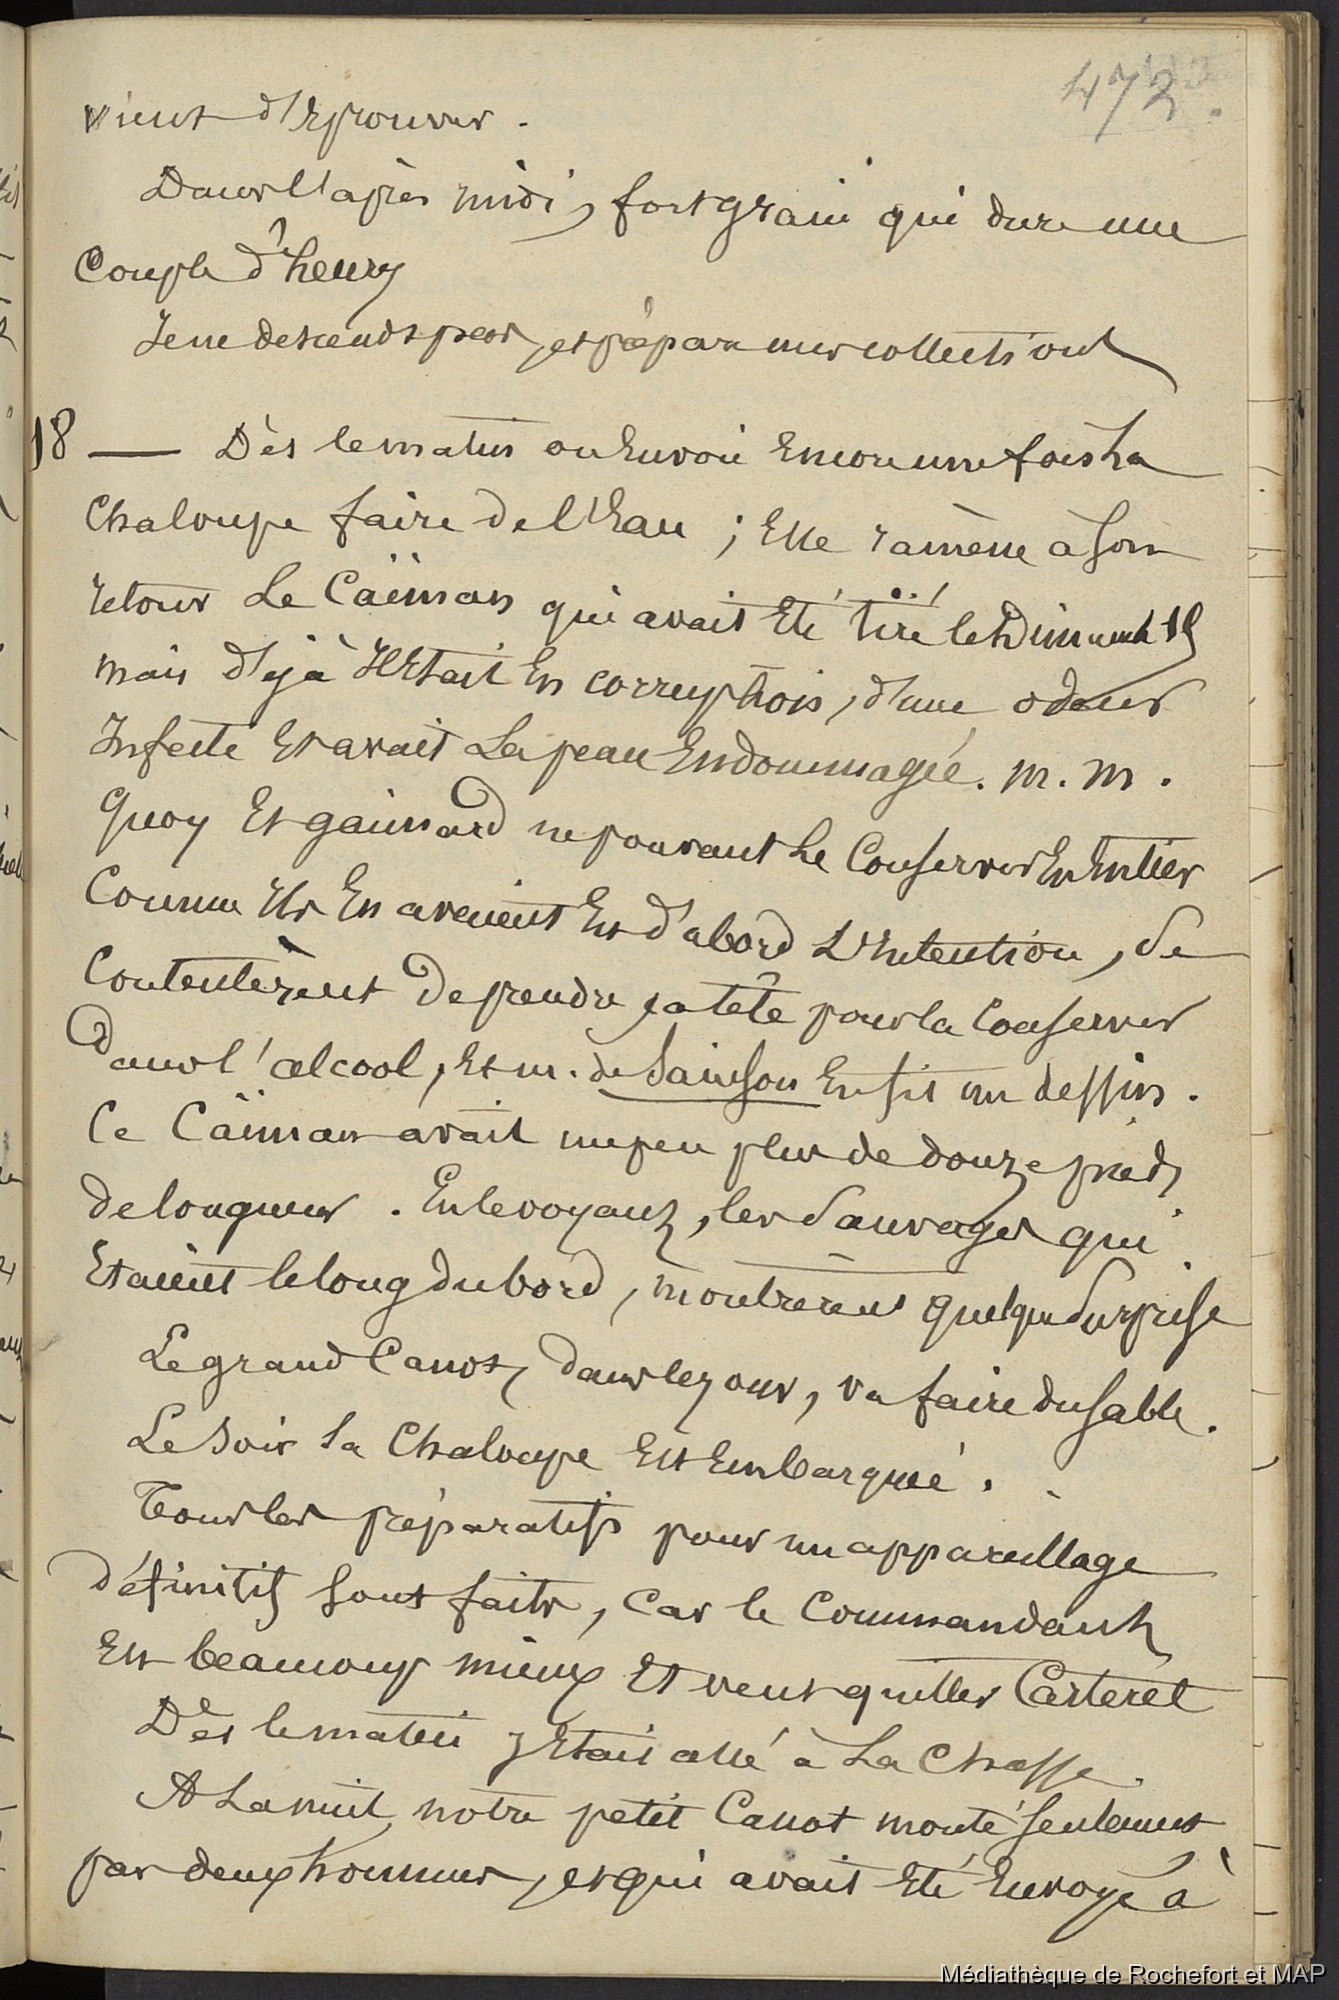 472.
vient d'Eprouver.
Dans l'après midi, fort grain qui dure une
Couple d'heures
Je ne descends pas, et prépare mes collections
18 — Dès le matin on Envoie Encore une fois La
Chaloupe faire de l'Eau ; Elle ramène à son
retour Le Caïman qui avait Eté tiré le Dimanche 15
mais déjà Il Etait En corruption, d'une odeur
Infecte Et avait La peau Endommagée. M. M.
Quoy Et gaimard ne pouvant Le Conserver En Entier
Comme Ils En avaient Eu d'abord L'Intention, se
Contentèrent de prendre sa tête pour la Conserver
Dans l'alcool, Et m. de Sainson En fit un dessin.
Ce Caïman avait un peu plus de douze pieds
de longueur. En le voyant, les Sauvages qui
Etaient le long du bord, montrèrent quelque Surprise
Le grand Canot, dans le jour, va faire du sable.
Le Soir La Chaloupe Est Embarquée.
Tous les préparatifs pour un appareillage
définitif sont faits, Car le Commandant
Est beaucoup mieux Et veut quitter Carteret
Dès le matin j'Etais allé à La Chasse.
A La nuit, notre petit Canot monté seulement
par deux hommes, et qui avait Eté Envoyé à
Médiathèque de Rochefort et MAP